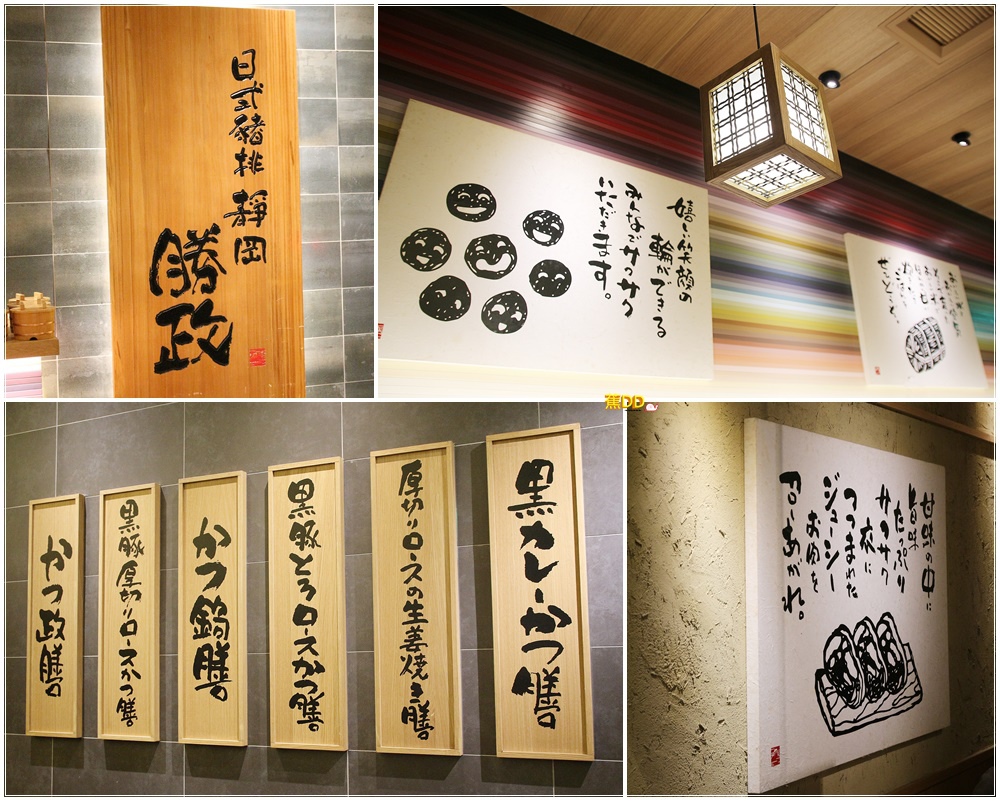 日式豬排 靜岡
勝政
嬉しい笑顔の
輪ができる
みんなでサクサク
いただきます。
蕉DD
黒カレーかつ膳
厚切りロースの生姜焼き膳
黒豚とろロースかつ膳
かつ鍋膳
黒豚厚切りロースかつ膳
かつ政膳
甘味の中に
旨味
たっぷり
サクサク
衣に
つつまれた
ジューシー
お肉を
召しあがれ。